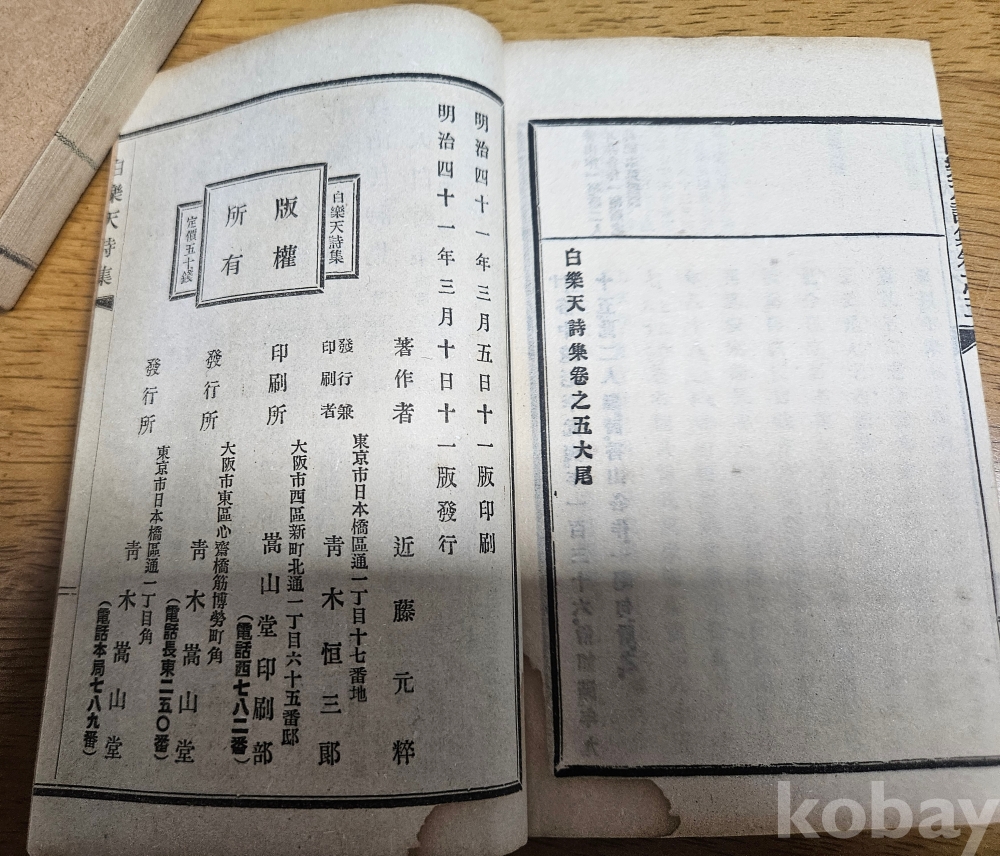 白樂天詩集卷之五大尾
明治四十一年三月五日十一版印刷
明治四十一年三月十日十一版發行
白樂天詩集
版權
所有
定價五十錢
著作者 近藤元粹
東京市日本橋區通一丁目十七番地
發行兼
印刷者 靑木恒三郞
大阪市西區新町北通一丁目六十五番邸
印刷所 嵩山堂印刷部
(電話西七八二番)
大阪市東區心齋橋筋博勞町角
發行所 靑木嵩山堂
(電話長東二五〇番)
東京市日本橋區通一丁目角
發行所 靑木嵩山堂
(電話本局七八九番)
白樂天詩集
kobay